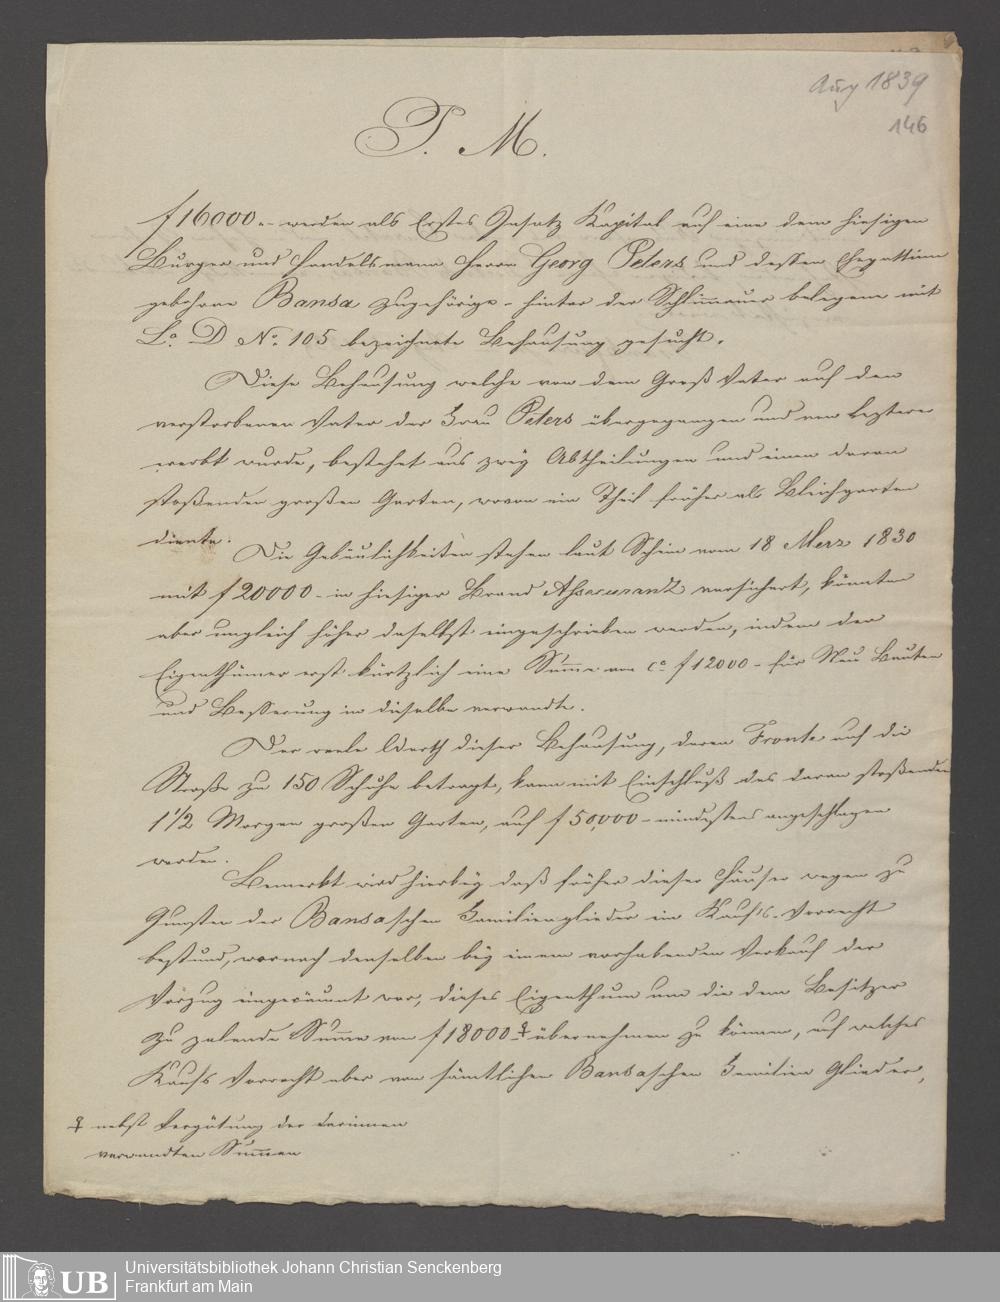 Aug 1839
146
P. M.
f 16000.- werden als Erstes Insatz Kapital auf eine dem hiesigen
Burger und Handelsmann Herrn Georg Peters und dessen Ehegattinn
gebohrne Bansa zugehörige - hinter der Schlimmauer belegene mit
La. D No. 105 bezeichnete Behausung gesucht.
Diese Behausung welche von dem Groß Vater auf den
verstorbenen Vater der Frau Peters übergegangen und von lezterer
ererbt wurde, bestehet aus zwey Abtheilungen und einem daran
stoßenden großen Garten, wovon ein Theil früher als Bleichgarten
diente.
Die Gebäulichkeiten stehen laut Schein vom 18 Merz 1830
mit f 20000 - in hiesiger Brand Assecuranz versichert, könnten
aber ungleich höher daselbst eingeschrieben werden, indem der
Eigenthümer erst kürtzlich eine Summe von ca f 12000 - für Neu Bauten
und Besserung in dieselbe verwandte.
Der reele Werth dieser Behausung, deren Fronte auf die
Straße zu 150 Schuhe betragt, kann mit Einschluß des daran stoßenden
1 1/2 Morgen großen Garten, auf f 50,000 - mindestens angeschlagen
werden.
Bemerkt wird hierbey daß früher dieser Häuser wegen zu
Gunsten der Bansaschen Familienglieder ein Kaufs-Vorrecht
bestund, wornach denselben bey einem vorhabenden Verkauf der
Vorzug eingeräumt war, dieses Eigenthum um die dem Besitzer
zu zalende Summe von f 18000 ‡ übernehmen zu können, auf welches
Kaufs Vorrecht aber von sämtlichen Bansaschen Familien Glieder,
‡ nebst Vergütung der darinnen
verwandten Summen
UB
Universitätsbibliothek Johann Christian Senckenberg
Frankfurt am Main